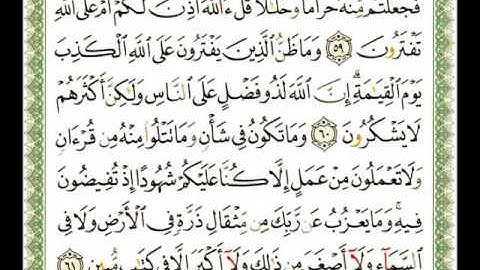 فَجَعَلْتُم مِّنْهُ حَرَامًا وَحَلَٰلًا قُلْ ءَآللَّهُ أَذِنَ لَكُمْ أَمْ عَلَى ٱللَّهِ
تَفْتَرُونَ ٥٩ وَمَا ظَنُّ ٱلَّذِينَ يَفْتَرُونَ عَلَى ٱللَّهِ ٱلْكَذِبَ
يَوْمَ ٱلْقِيَٰمَةِ ۗ إِنَّ ٱللَّهَ لَذُو فَضْلٍ عَلَى ٱلنَّاسِ وَلَٰكِنَّ أَكْثَرَهُمْ
لَا يَشْكُرُونَ ٦٠ وَمَا تَكُونُ فِى شَأْنٍ وَمَا تَتْلُوا۟ مِنْهُ مِن قُرْءَانٍ
وَلَا تَعْمَلُونَ مِنْ عَمَلٍ إِلَّا كُنَّا عَلَيْكُمْ شُهُودًا إِذْ تُفِيضُونَ
فِيهِ ۚ وَمَا يَعْزُبُ عَن رَّبِّكَ مِن مِّثْقَالِ ذَرَّةٍ فِى ٱلْأَرْضِ وَلَا فِى
ٱلسَّمَآءِ وَلَآ أَصْغَرَ مِن ذَٰلِكَ وَلَآ أَكْبَرَ إِلَّا فِى كِتَٰبٍ مُّبِينٍ ٦١